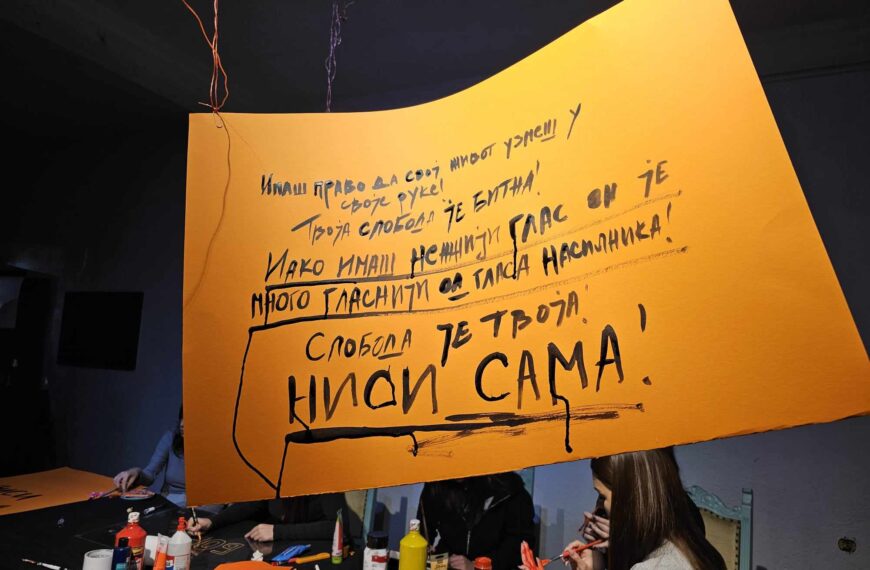 Имаш право да свој живот узмеш у
своје руке!
Твоја слобода је битна!
Иако имаш нежнији глас он је
много гласнији од гласа насилника!
Слобода је твоја!
Ниси сама!